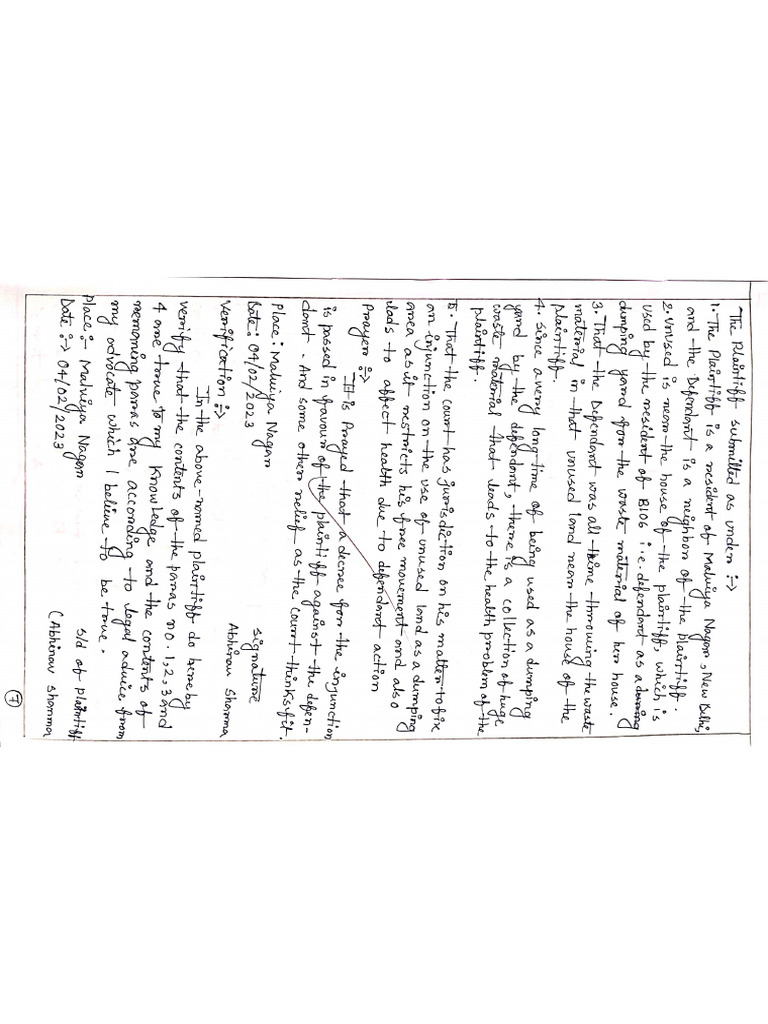 The Plaintiff submitted as under :→
1. The Plaintiff is a resident of Malviya Nagar, New Delhi,
and the Defendant is a neighbor of the plaintiff.
2. Unused is near the house of the plaintiff, which is
used by the resident of B10s i.e. defendant as a
dumping yard for the waste material of her house.
3. That the Defendant was all time throwing the waste
material in that unused land near the house of the
plaintiff.
4. Since a very long time of being used as a dumping
yard by the defendant, there is a collection of huge
waste material that leads to the health problem of the
plaintiff.
5. That the court has jurisdiction on his matter to fix
an injunction on the use of unused land as a dumping
area as it restricts his free movement and also
leads to affect health due to defendant action
Prayer :→
It is Prayed that a decree for the injunction
is passed in favour of the plaintiff against the defen-
dant. And some other relief as the court thinks fit.
Place : Malviya Nagar
Date : 04/02/2023
signature
Abhinav Sharma
Verification :→
In the above-named plaintiff do hereby
verify that the contents of the paras no. 1, 2, 3 and
4 are true to my knowledge and the contents of
remaining paras are according to legal advice from
my advocate which I believe to be true.
place :- Malviya Nagar
Date :→ 04/02/2023
s/d of plaintiff
(Abhinav Sharma
7